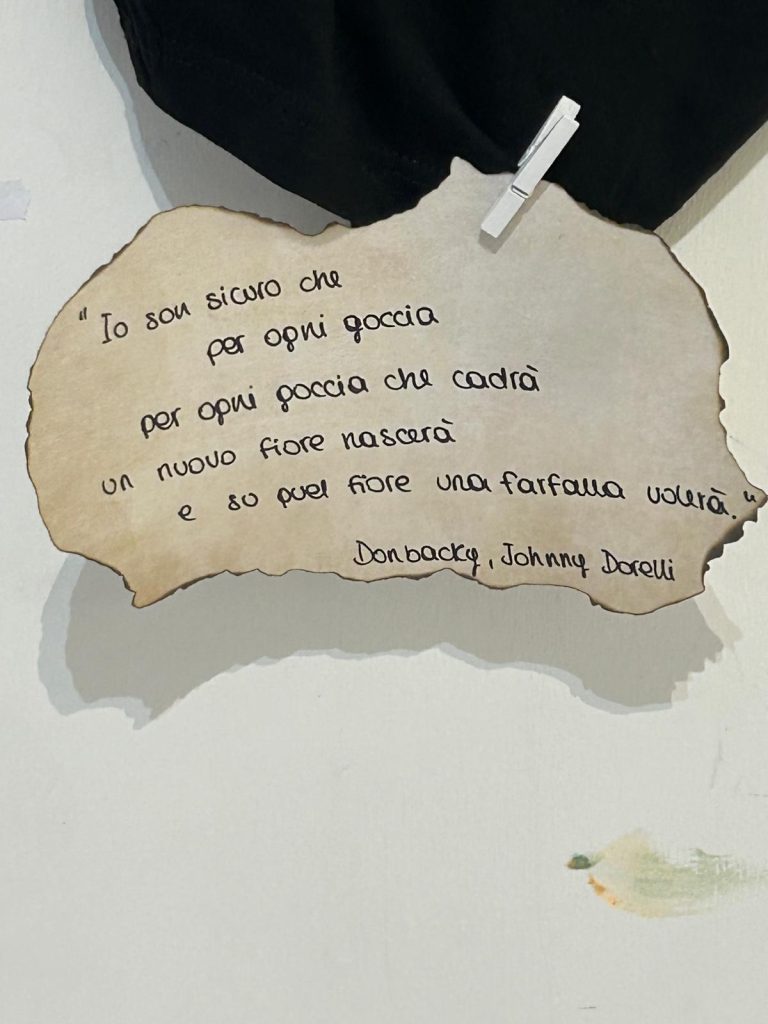 "Io son sicuro che
per ogni goccia
per ogni goccia che cadrà
un nuovo fiore nascerà
e su quel fiore una farfalla volerà."
Donbacky, Johnny Dorelli